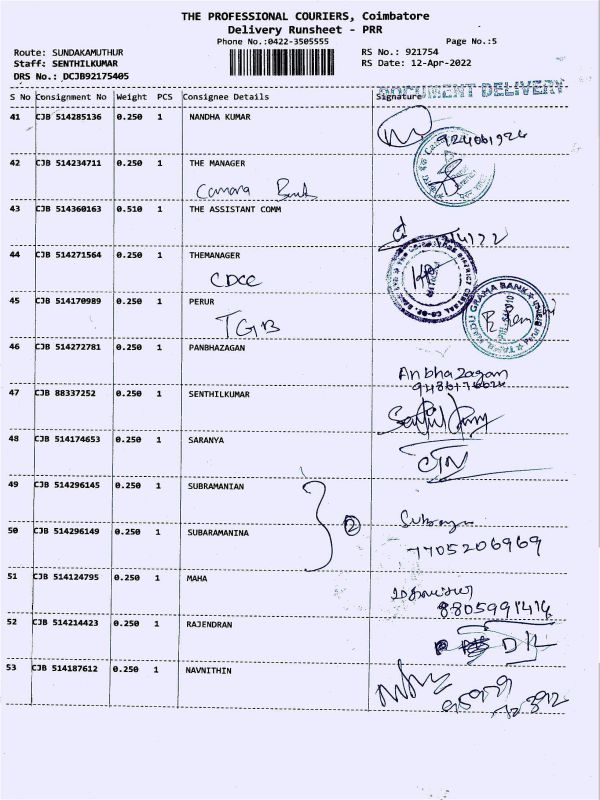 THE PROFESSIONAL COURIERS, Coimbatore
Delivery Runsheet - PRR
Phone No.:0422-3505555
Page No.:5
Route: SUNDAKAMUTHUR
RS No.: 921754
Staff: SENTHILKUMAR
RS Date: 12-Apr-2022
DRS No.: DCJB92175405
DOCUMENT DELIVERY
S No Consignment No Weight PCS Consignee Details Signature
41 CJB 514285136 0.250 1 NANDHA KUMAR
42 CJB 514234711 0.250 1 THE MANAGER
Canara Bank
43 CJB 514360163 0.510 1 THE ASSISTANT COMM
44 CJB 514271564 0.250 1 THEMANAGER
CDCC
45 CJB 514170989 0.250 1 PERUR
TGB
46 CJB 514272781 0.250 1 PANBHAZAGAN
Anbhazagan
47 CJB 88337252 0.250 1 SENTHILKUMAR
48 CJB 514174653 0.250 1 SARANYA
49 CJB 514296145 0.250 1 SUBRAMANIAN
2
50 CJB 514296149 0.250 1 SUBARAMANINA
7705206969
51 CJB 514124795 0.250 1 MAHA
8805991414
52 CJB 514214423 0.250 1 RAJENDRAN
53 CJB 514187612 0.250 1 NAVNITHIN